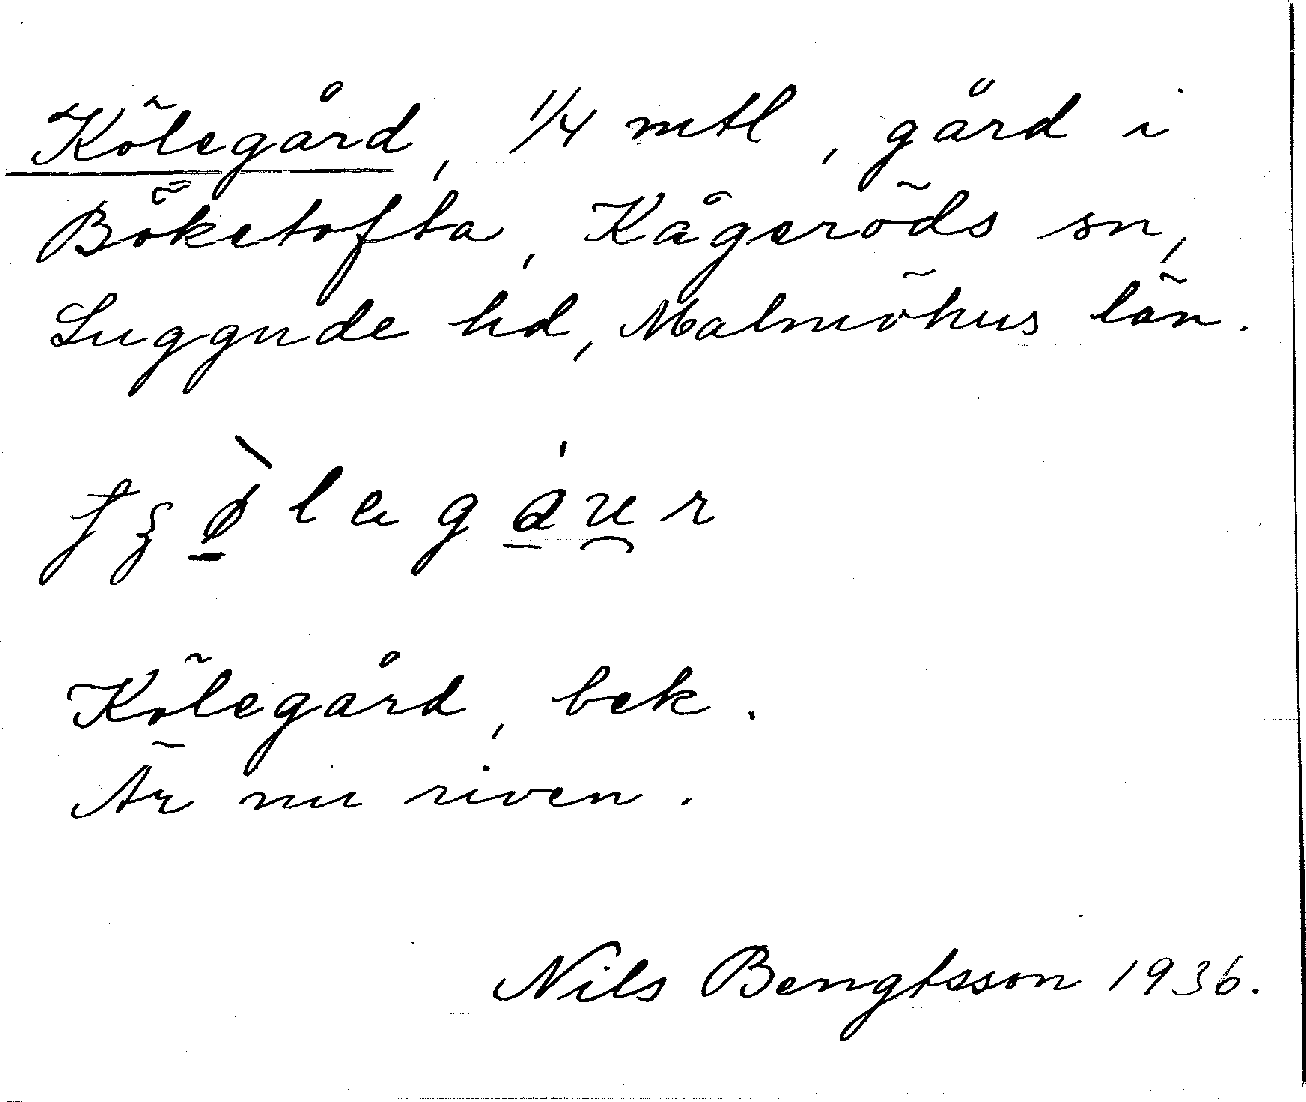 Kölegård, 1/4 mtl, gård i
Böketofta, Kågeröds sn,
Luggude hd, Malmöhus län.
Kölegård, bek.
Är nu riven.
Nils Bengtsson 1936.